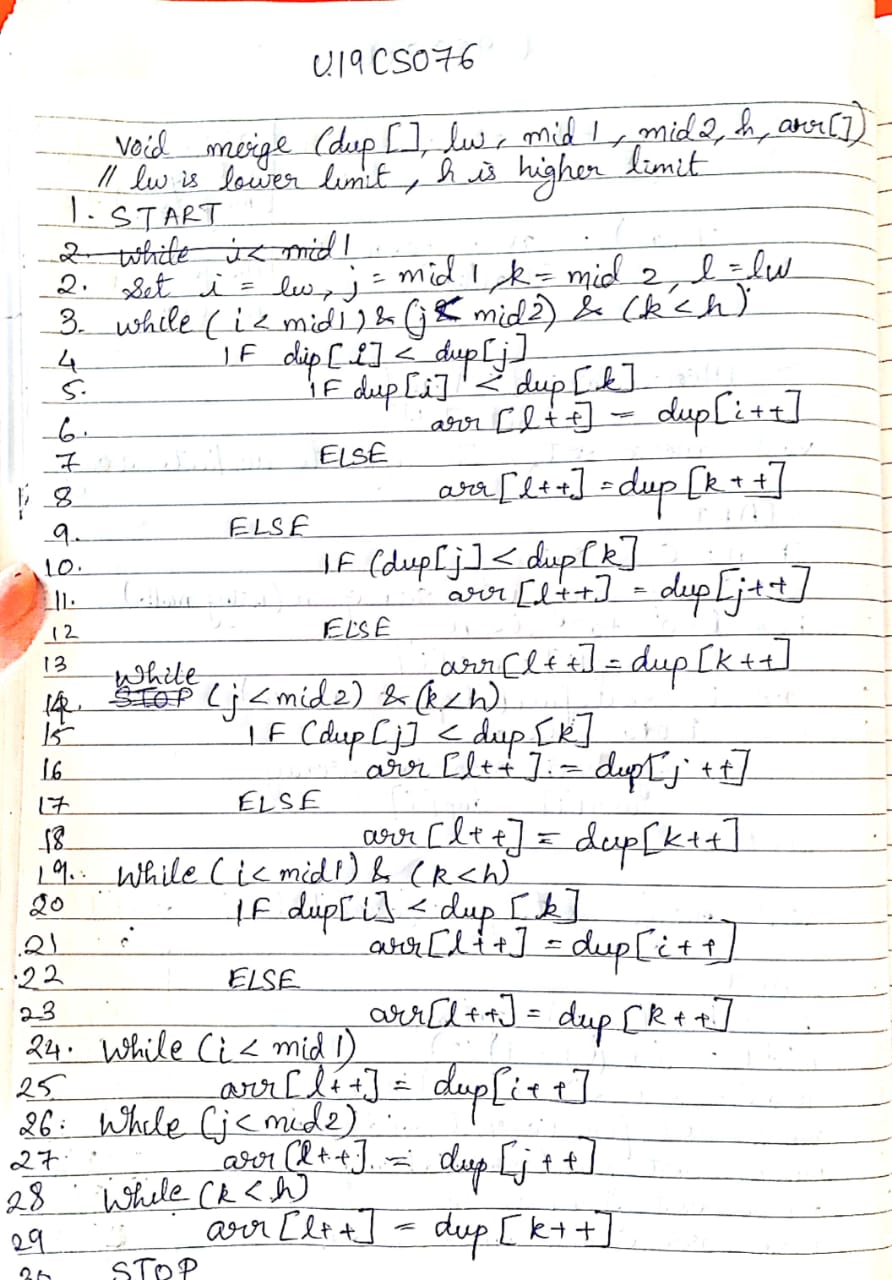 U19CS076
void merge (dup[], lw, mid1, mid2, h, arr[])
// lw is lower limit, h is higher limit
1. START
2. while i< mid1
2. Set i = lw, j = mid1, k = mid2, l = lw
3. while (i < mid1) & (j < mid2) & (k < h)
4 IF dip[i] < dup[j]
5. IF dup[i] < dup[k]
6. arr[l++] = dup[i++]
7 ELSE
8 arr[l++] = dup[k++]
9. ELSE
10. IF (dup[j] < dup[k]
11. arr[l++] = dup[j++]
12 ELSE
13 arr[l++] = dup[k++]
14. STOP While (j < mid2) & (k < h)
15 IF (dup[j] < dup[k]
16 arr[l++] = dup[j++]
17 ELSE
18 arr[l++] = dup[k++]
19. While (i < mid1) & (k < h)
20 IF dup[i] < dup[k]
21 arr[l++] = dup[i++]
22 ELSE
23 arr[l++] = dup[k++]
24. While (i < mid1)
25 arr[l++] = dup[i++]
26. While (j < mid2)
27 arr[l++] = dup[j++]
28 While (k < h)
29 arr[l++] = dup[k++]
30 STOP